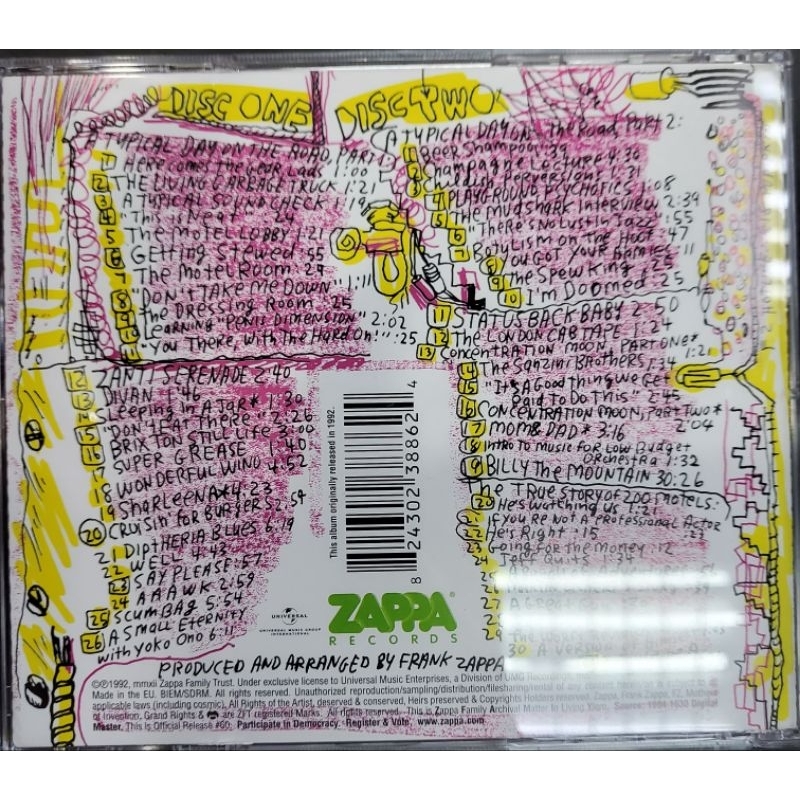 DISC ONE
A TYPICAL DAY ON THE ROAD, PART 1
1 HERE COMES THE GEAR, LADS 1:00
2 THE LIVING GARBAGE TRUCK 1:21
3 A TYPICAL SOUND CHECK 1:19
4 "This is Neat" :24
5 THE MOTEL LOBBY 1:21
6 Getting Stewed :55
7 The Motel Room :29
8 "DON'T TAKE ME DOWN" 1:11
9 The Dressing Room :25
10 Learning "PENIS DIMENSION" 2:02
11 "You There, With The Hard On!" :25
12 ZANTI SERENADE 2:40
13 DIVAN 1:46
14 Sleeping In A Jar* 1:30
15 "DON'T EAT THERE" 2:26
16 BRIXTON STILL LIFE 3:00
17 SUPER GREASE 1:40
18 WONDERFUL WINO 4:52
19 SHARLEENA* 4:23
20 CRUISIN' FOR BURGERS 2:54
21 DIPTHERIA BLUES 6:19
22 WELL 4:43
23 SAY PLEASE :57
24 AAAWK 2:59
25 SCUMBAG 5:54
26 A Small Eternity
with YOKO ONO 6:11
DISC TWO
A TYPICAL DAY ON The Road, Part 2:
1 Beer Shampoo 1:39
2 Champagne Lecture 4:30
3 Childish Perversions 1:31
4 PLAYGROUND PSYCHOTICS 1:08
5 The Mudshark Interview 2:39
6 "There's No Lust in Jazz" :55
7 Botulism on the Hoof :47
8 YOU GOT YOUR ARMIES :11
9 The Spew King :25
10 I'm Doomed :25
11 STATUS BACK BABY 2:50
12 The LONDON CAB TAPE 1:24
13 Concentration MOON, PART ONE* 1:2
14 The Sanzini Brothers 1:34
15 "It's A Good Thing we Get
Paid To Do This" 2:45
16 CONCENTRATION MOON, PART TWO* 2:04
17 MOM & DAD* 3:16
18 INTRO TO MUSIC FOR LOW BUDGET
Orchestra 1:32
19 BILLY THE MOUNTAIN 30:26
The TRUE STORY OF 200 MOTELS:
20 He's Watching us 1:21
21 If you're Not A Professional Actor :23
22 He's Right :15
23 Going for the Money :12
24 Jeff Quits 1:34
25
26
27 A GR
28
29 The
30 A VERY
This album originally released in 1992.
8 24302 38862 4
UNIVERSAL
UNIVERSAL MUSIC GROUP
INTERNATIONAL
ZAPPA
RECORDS
PRODUCED AND ARRANGED BY FRANK ZAPPA
©℗1992, mmxii Zappa Family Trust. Under exclusive license to Universal Music Enterprises, a Division of UMG Recordings
Made in the EU. BIEM/SDRM. All rights reserved. Unauthorized reproduction/sampling/distribution/filesharing/rental of any
applicable laws (including cosmic). All Rights of the Artist, deserved & conserved, Heirs preserved & Copyrights Holders reserved. Zappa, Frank Zappa, FZ, Mothers
of Invention, Grand Rights & are ZFT registered Marks. All rights reserved. This is Zappa Family Archival Master In Living Xium. Source: 1994 1630 Digital
Master. This is Official Release #60. Participate in Democracy. Register & Vote. www.zappa.com